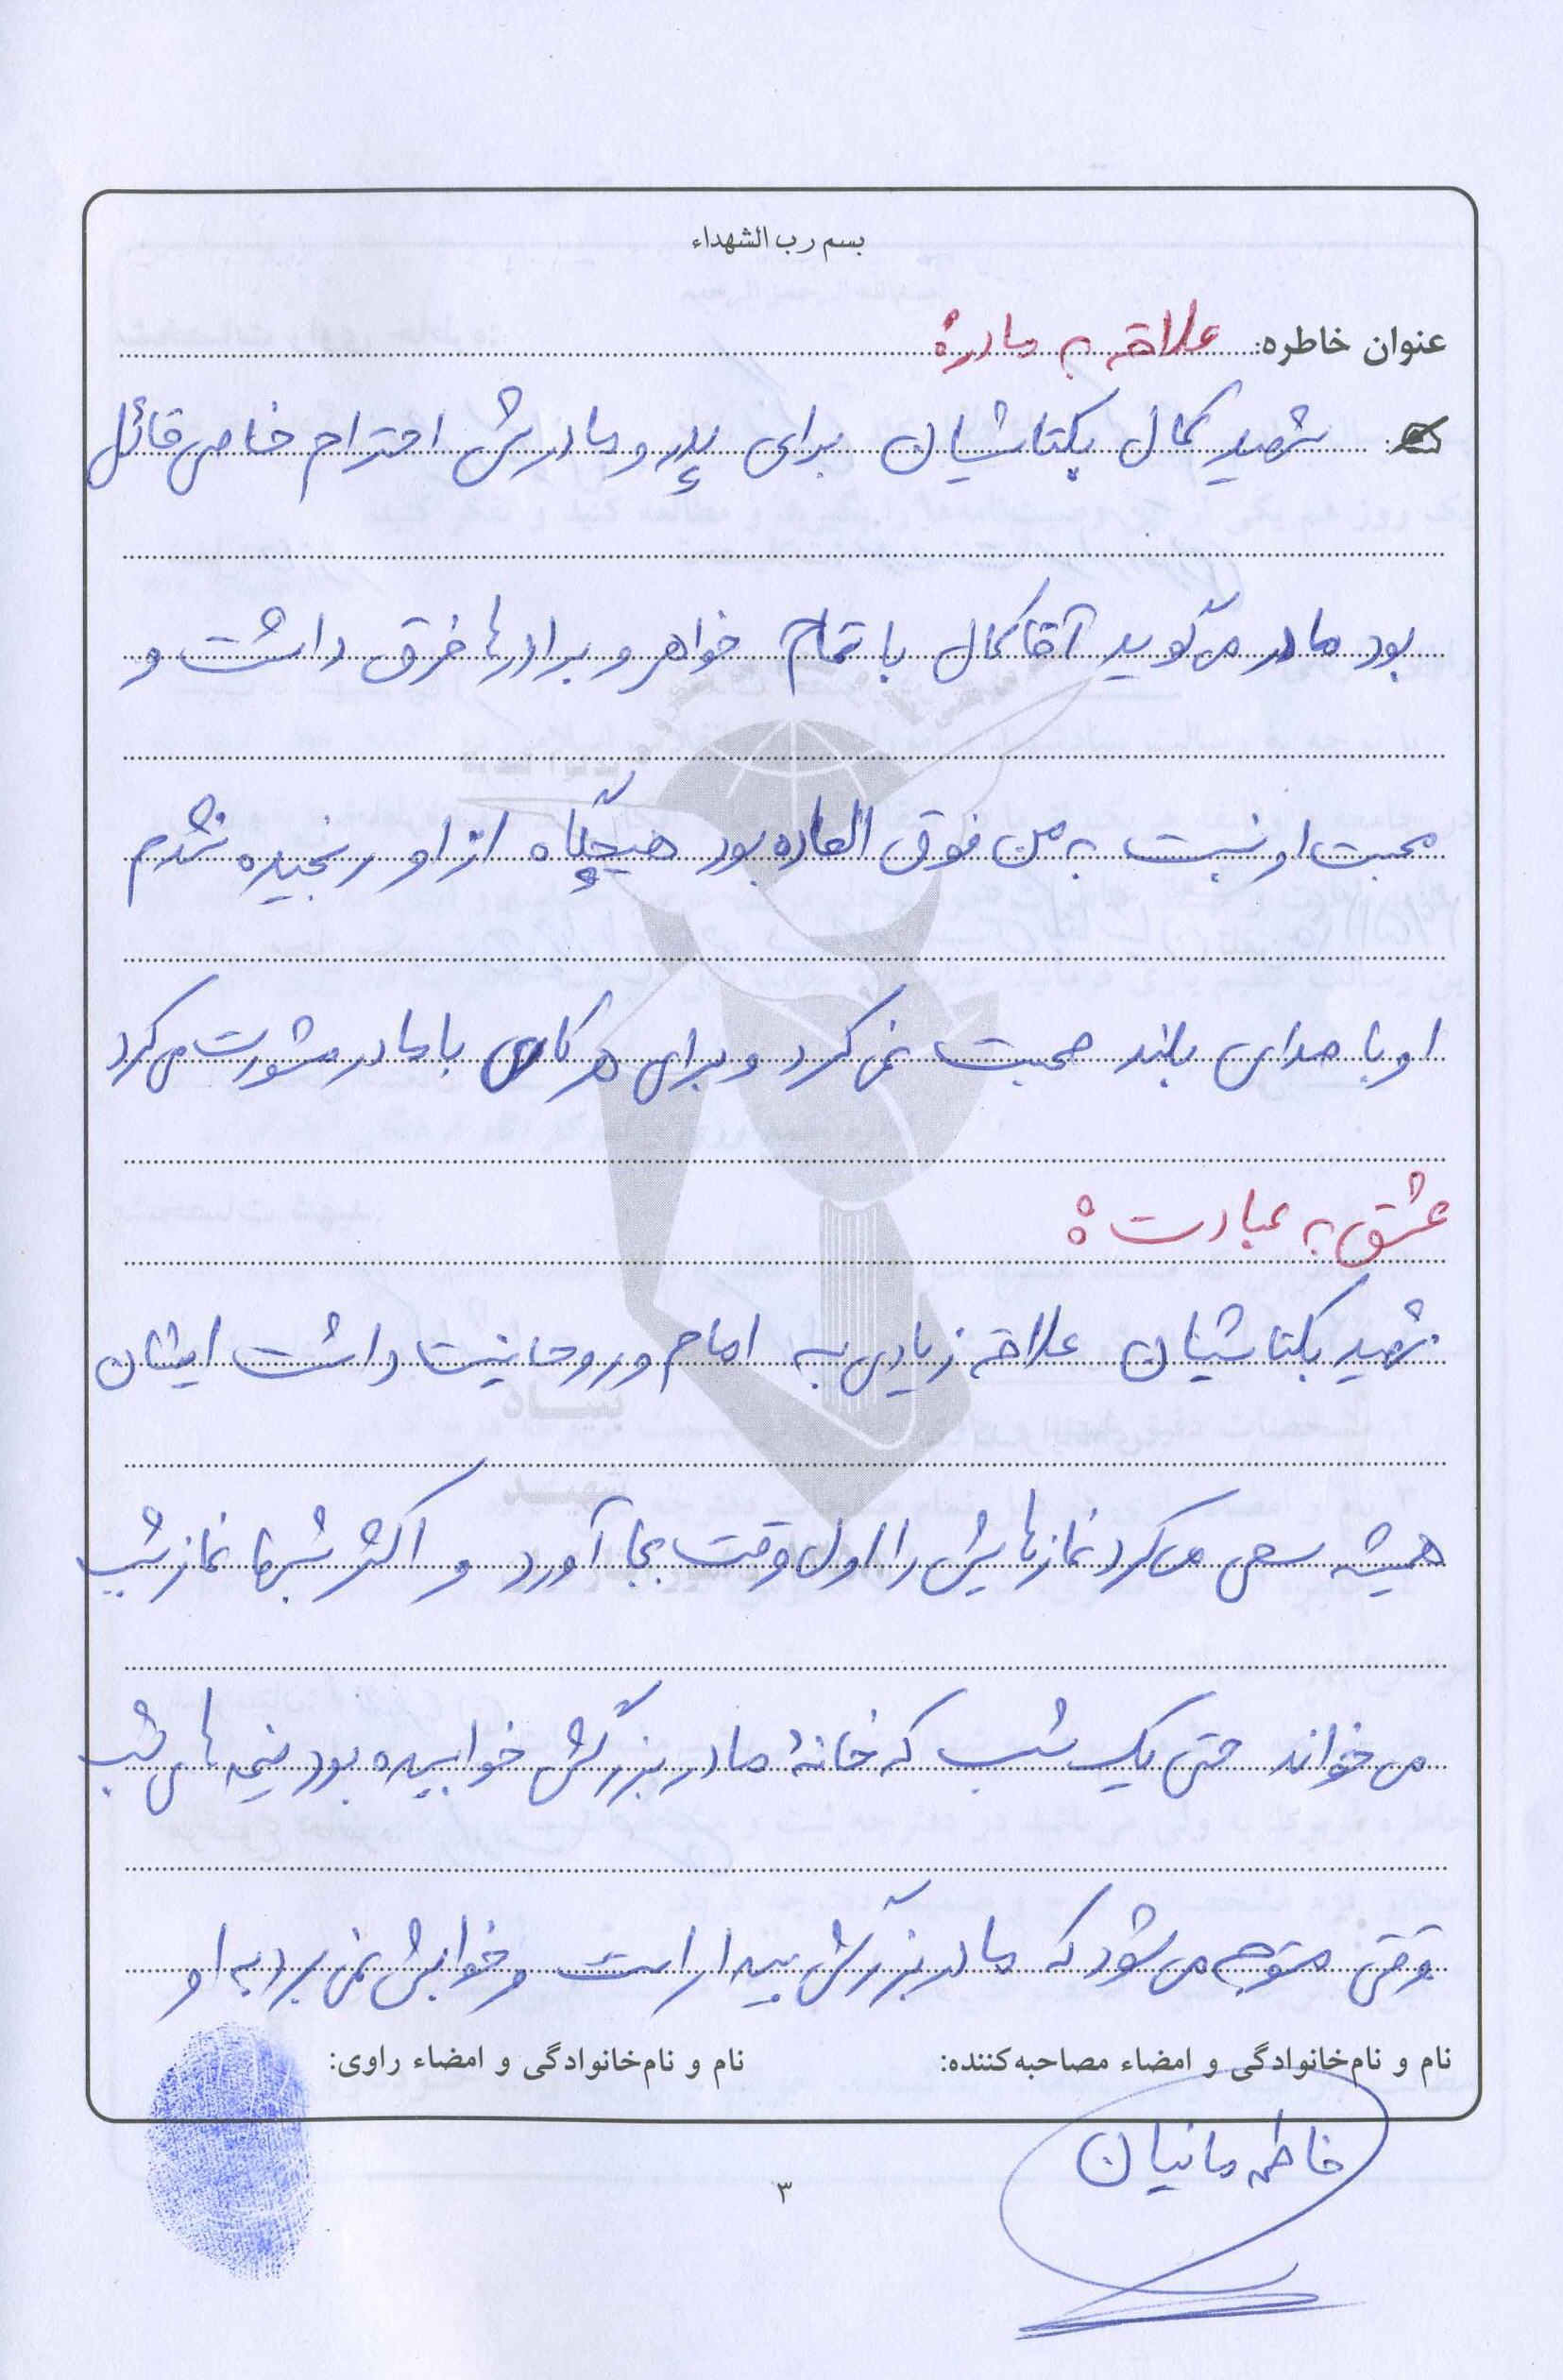 بسم رب الشهداء
عنوان خاطره: علاقه به مادر:
شهید کمال یکتاشیان برای پدر و مادرش احترام خاصی قائل
بود مادر می‌گوید آقا کمال با تمام خواهر و برادرها فرق داشت و
محبت او نسبت به من فوق العاده بود هیچگاه از او رنجیده نشدم
او با صدای بلند صحبت نمی کرد و برای هر کاری با مادر مشورت می کرد
عشق به عبادت:
شهید یکتاشیان علاقه زیادی به امام و روحانیت داشت ایشان
همیشه سعی می کرد نمازهایش را اول وقت بجا آورد و اکثر شبها نماز شب
می خواند حتی یک شب که خانهٔ مادر بزرگش خوابیده بود نیمه های شب
وقتی متوجه می شود که مادر بزرگش بیدار است و خوابش نمی برد به او
نام و نام‌خانوادگی و امضاء مصاحبه‌کننده: نام و نام‌خانوادگی و امضاء راوی:
فاطمه مانیان
۳